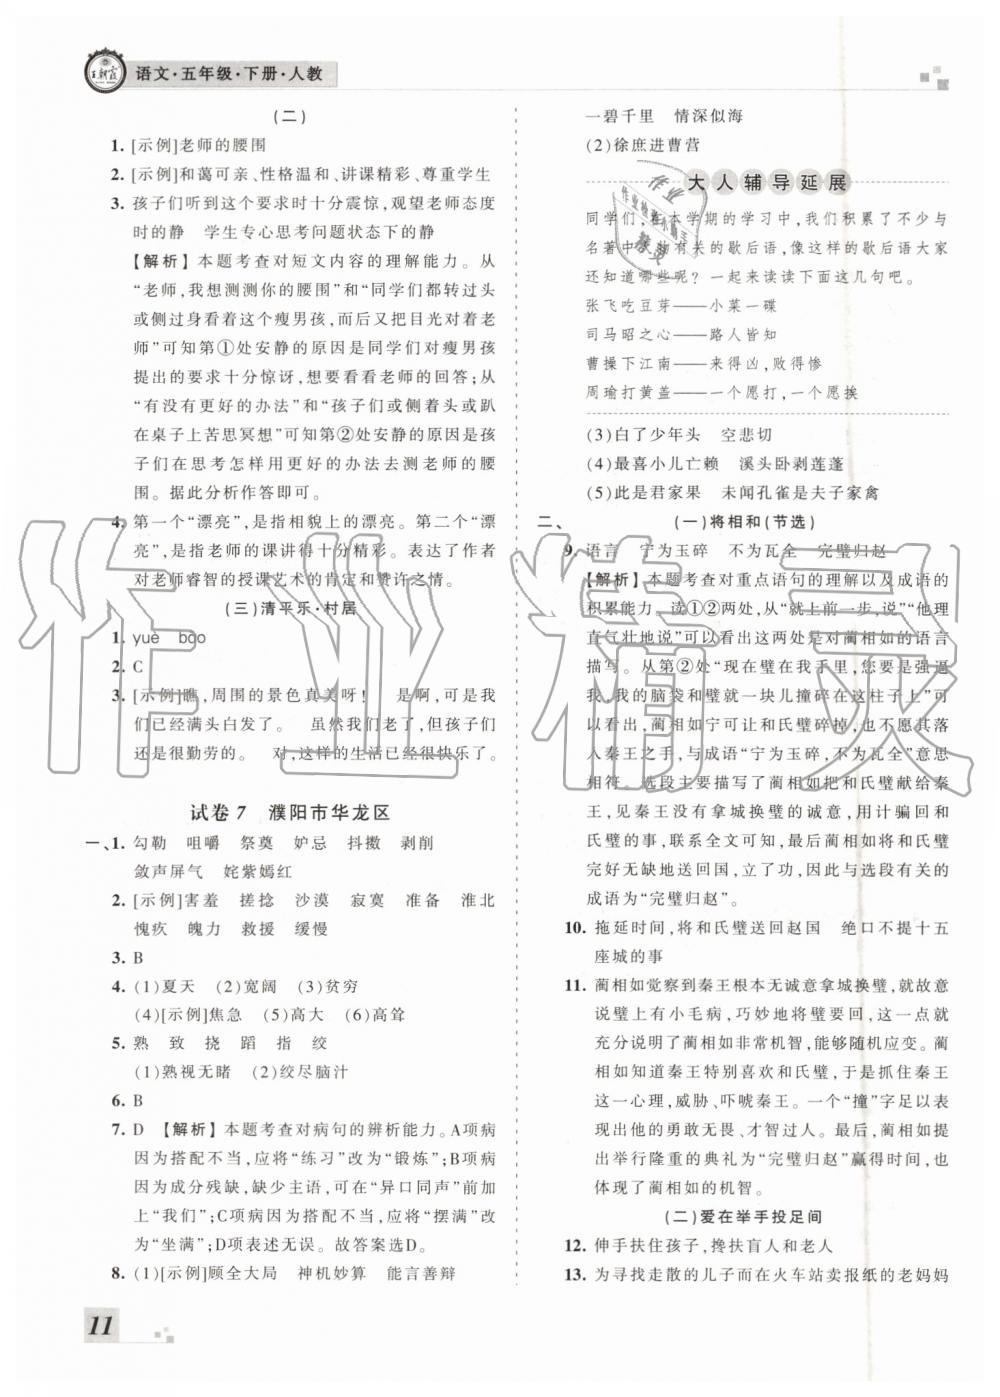 王朝霞
语文·五年级·下册·人教
(二)
1. [示例]老师的腰围
2. [示例]和蔼可亲、性格温和、讲课精彩、尊重学生
3. 孩子们听到这个要求时十分震惊,观望老师态度
时的静 学生专心思考问题状态下的静
【解析】本题考查对短文内容的理解能力。从
“老师,我想测测你的腰围”和“同学们都转过头
或侧身看着这个瘦男孩,而后又把目光对着老
师”可知第①处安静的原因是同学们对瘦男孩
提出的要求十分惊讶,想看看老师的回答;从
“有没有更好的办法”和“孩子们或侧着头或趴
在桌子上苦思冥想”可知第②处安静的原因是孩
子们在思考怎样用更好的办法去测老师的腰
围。据此分析作答即可。
4. 第一个“漂亮”,是指相貌上的漂亮。第二个“漂
亮”,是指老师的课讲得十分精彩。表达了作者
对老师睿智的授课艺术的肯定和赞许之情。
(三)清平乐·村居
1. yuè bāo
2. C
3. [示例]瞧,周围的景色真美呀! 是啊,可是我
们已经满头白发了。 虽然我们老了,但孩子们
还是很勤劳的。 对,这样的生活已经很快乐了。
试卷 7 濮阳市华龙区
一、1. 勾勒 咀嚼 祭奠 妒忌 抖擞 剥削
敛声屏气 姹紫嫣红
2. [示例]害羞 搓捻 沙漠 寂寞 准备 淮北
愧疚 魄力 救援 缓慢
3. B
4. (1)夏天 (2)宽阔 (3)贫穷
(4)[示例]焦急 (5)高大 (6)高耸
5. 熟 致 挠 蹈 指 绞
(1)熟视无睹 (2)绞尽脑汁
6. B
7. D 【解析】本题考查对病句的辨析能力。A项病
因为搭配不当,应将“练习”改为“锻炼”;B项病
因为成分残缺,缺少主语,可在“异口同声”前加
上“我们”;C项病因为搭配不当,应将“摆满”改
为“坐满”;D项表述无误。故答案选D。
8. (1)[示例]顾全大局 神机妙算 能言善辩
11
一碧千里 情深似海
(2)徐庶进曹营
大人辅导延展
同学们,在本学期的学习中,我们积累了不少与
名著中人物有关的歇后语,像这样的歇后语大家
还知道哪些呢? 一起来读读下面这几句吧。
张飞吃豆芽——小菜一碟
司马昭之心——路人皆知
曹操下江南——来得凶,败得惨
周瑜打黄盖——一个愿打,一个愿挨
(3)白了少年头 空悲切
(4)最喜小儿亡赖 溪头卧剥莲蓬
(5)此是君家果 未闻孔雀是夫子家禽
二、 (一)将相和(节选)
9. 语言 宁为玉碎 不为瓦全 完璧归赵
【解析】本题考查对重点语句的理解以及成语的
积累能力。读①②两处,从“就上前一步,说”“他理
直气壮地说”可以看出这两处是对蔺相如的语言
描写。从第②处“现在璧在我手里,您要是强逼
我,我的脑袋和璧就一块儿撞碎在这柱子上”可
以看出,蔺相如宁可让和氏璧碎掉,也不愿其落
入秦王之手,与成语“宁为玉碎,不为瓦全”意思
相符。选段主要描写了蔺相如把和氏璧献给秦
王,见秦王没有拿城换璧的诚意,用计骗回和
氏璧的事,联系全文可知,蔺相如最后将和氏璧
完好无缺地送回国,立了功,因此与选段有关的
成语为“完璧归赵”。
10. 拖延时间,将和氏璧送回赵国 绝口不提十五
座城的事
11. 蔺相如觉察到秦王根本无诚意拿城换璧,就故意
说璧上有小毛病,巧妙地将璧要回,这一点就
充分说明了蔺相如非常机智,能够随机应变。蔺
相如知道秦王特别喜欢和氏璧,于是抓住秦王
这一心理,威胁、吓唬秦王。一个“撞”字足以表
现出他的勇敢无畏、才智过人。最后,蔺相如
提出举行隆重的典礼为“完璧归赵”赢得时间,也
体现了蔺相如的机智。
(二)爱在举手投足间
12. 伸手扶住孩子,搀扶盲人和老人
13. 为寻找走散的儿子而在火车站卖报纸的老妈妈
作业精灵